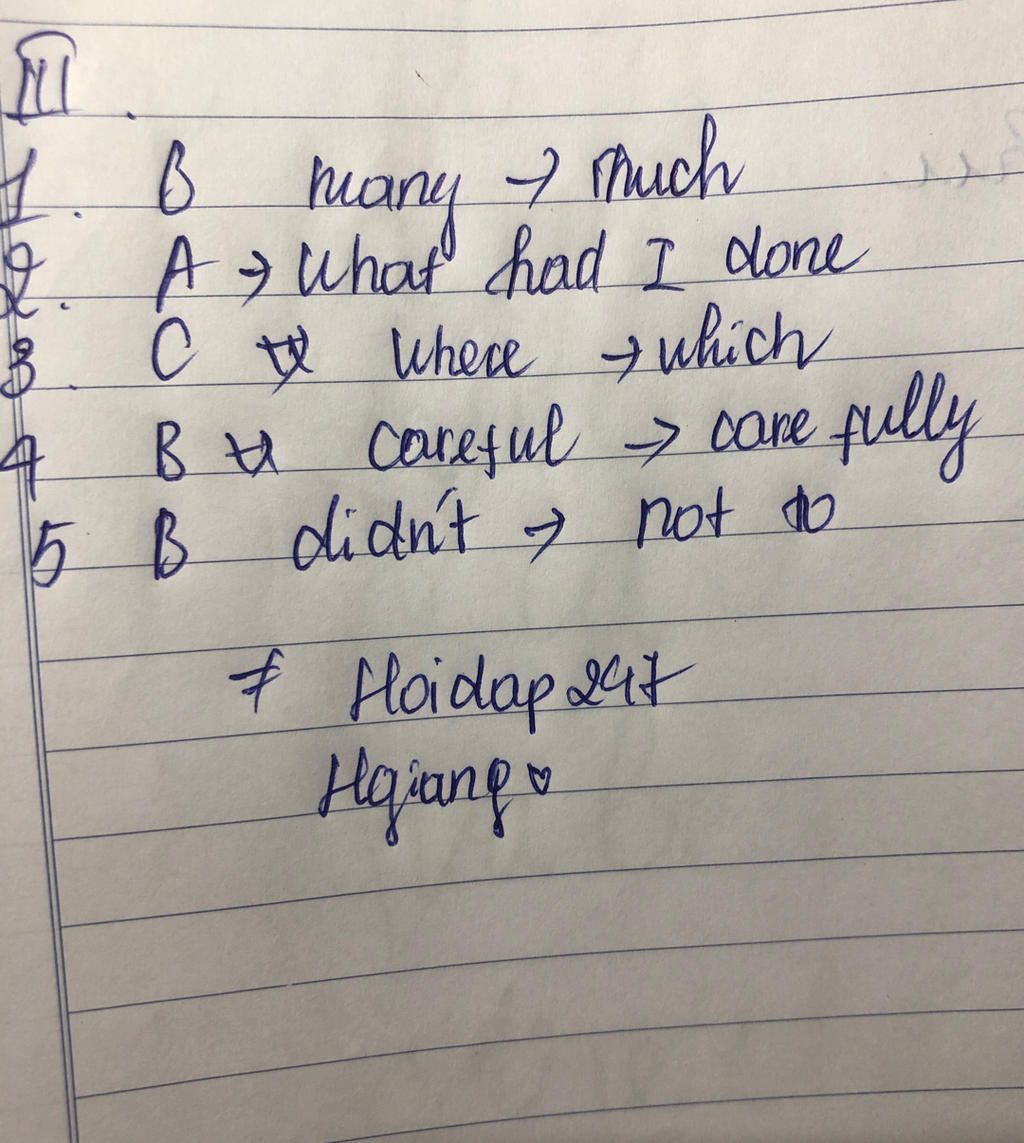 III.
1. B many → much
2. A → What had I done
3. C where → which
4 B careful → carefully
5 B didn't → not to
≠ Hoidap247
Hgiang ♡